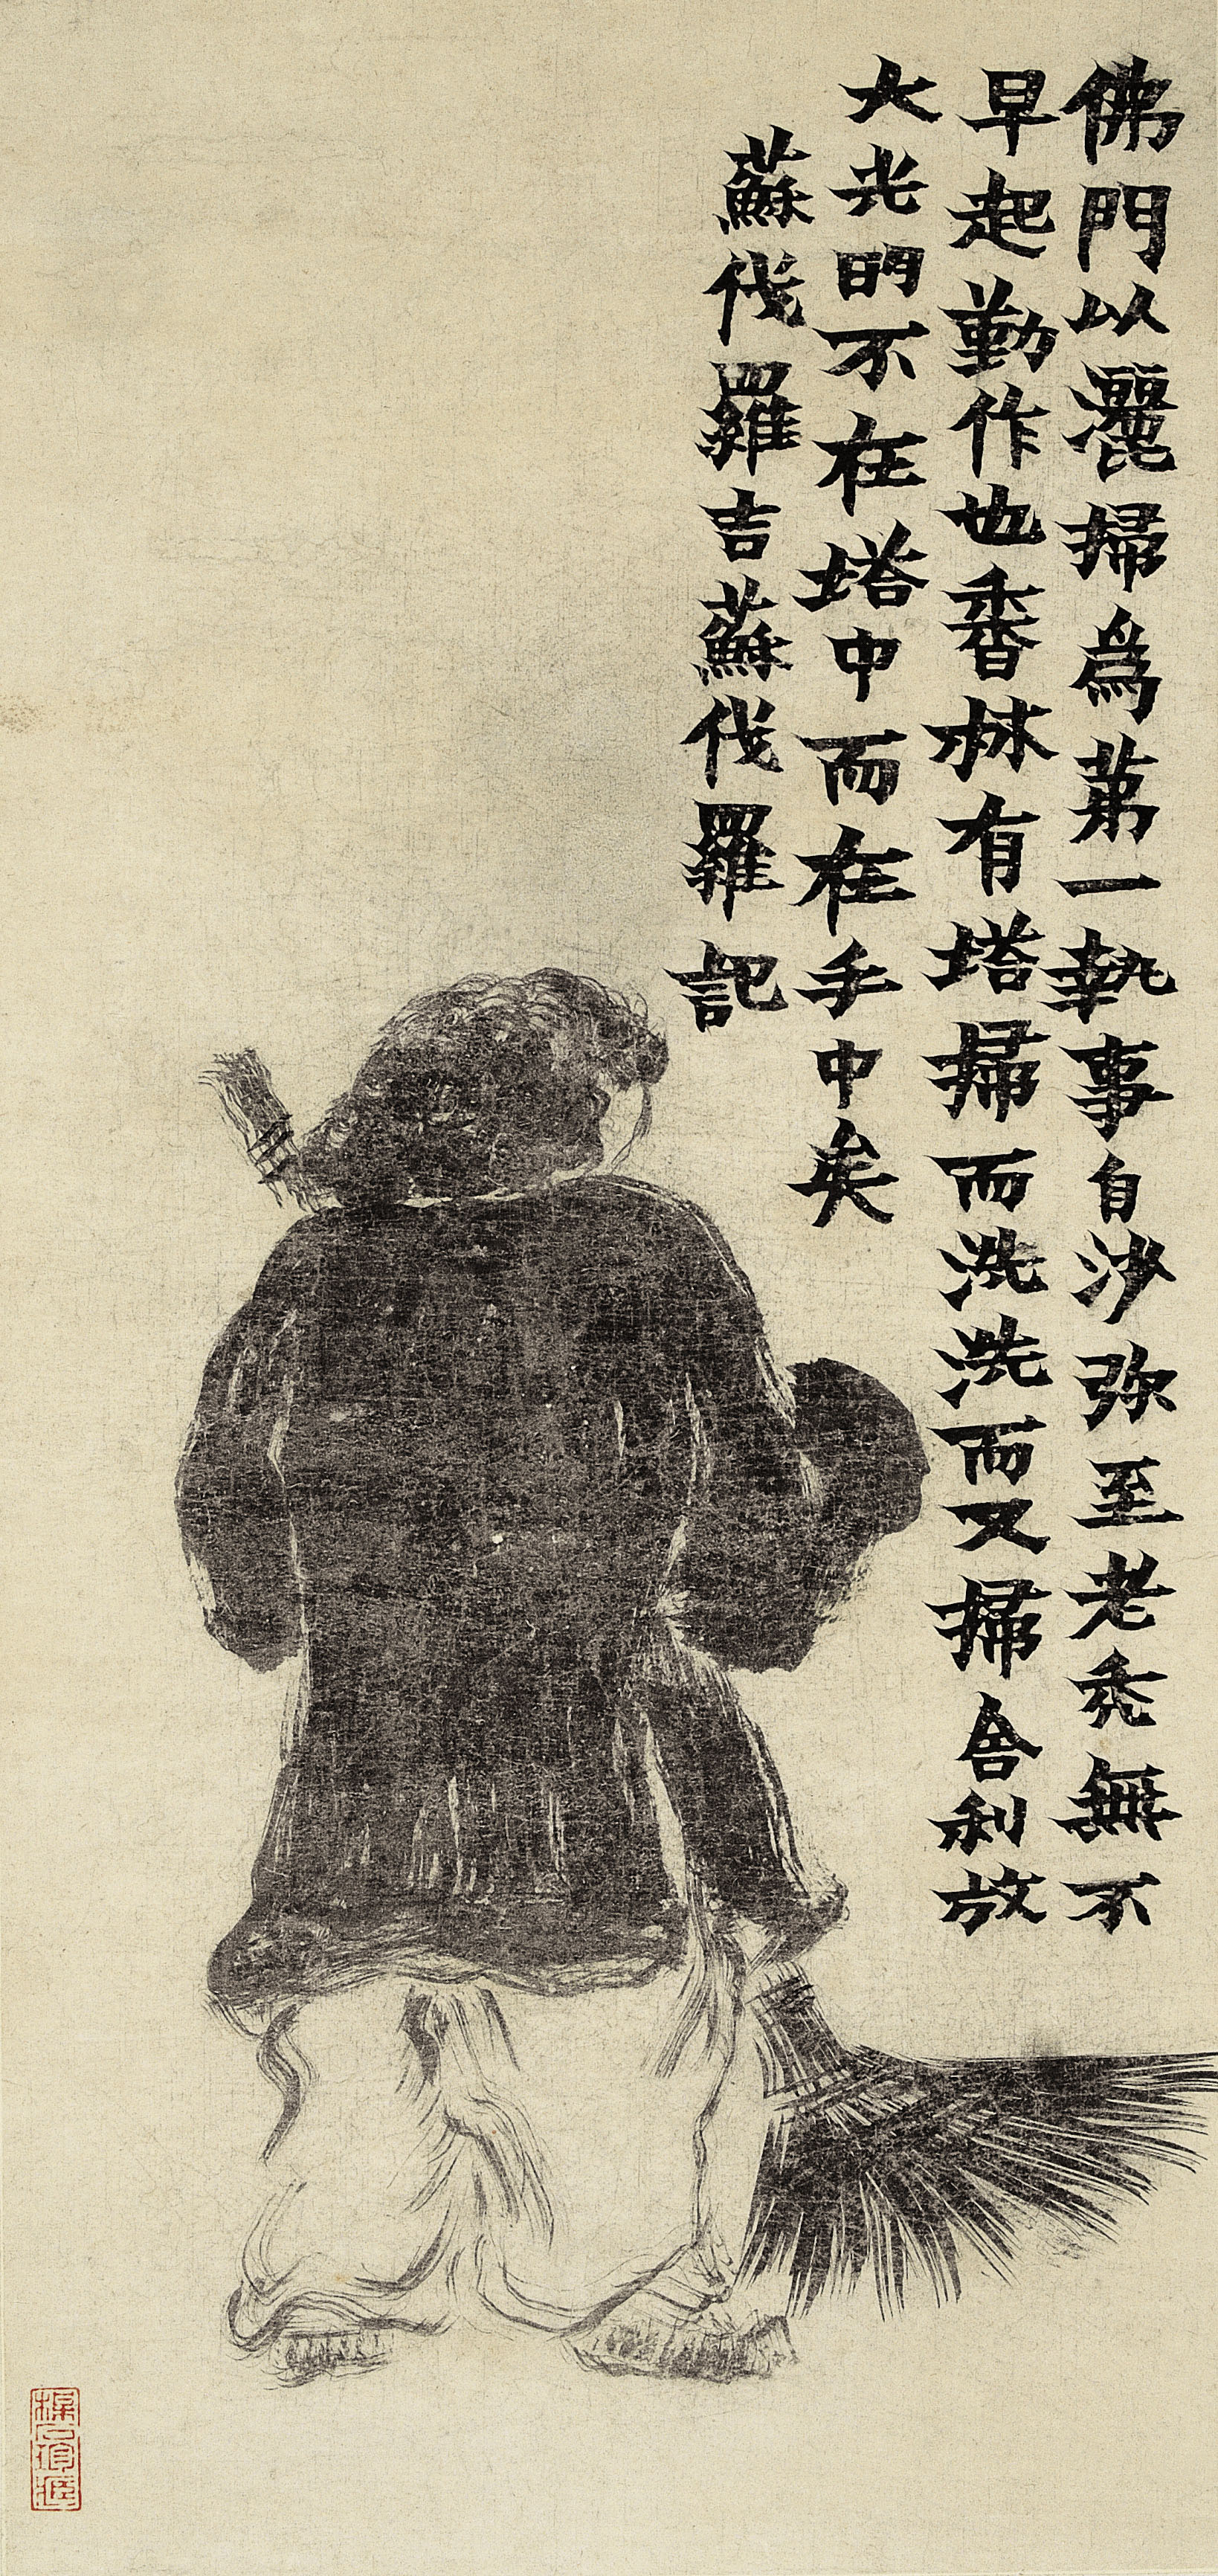 佛門以灑掃為苐一執事自沙弥至老禿無不
早起勤作也香林有塔掃而洗洗而又掃舍利放
大光明不在塔中而在手中矣
蘇伐羅吉蘇伐羅記